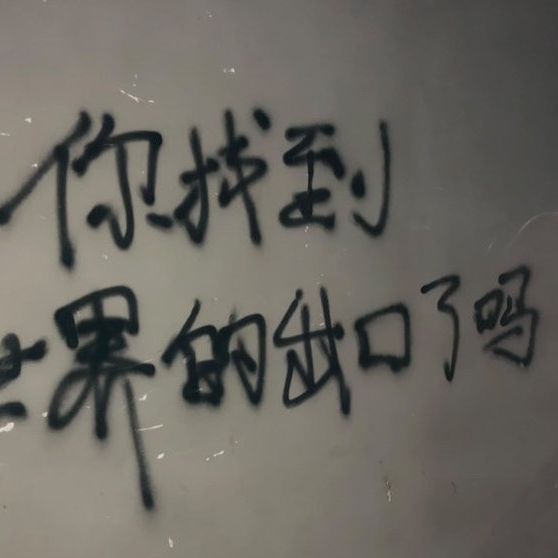 你找到
世界的出口了吗